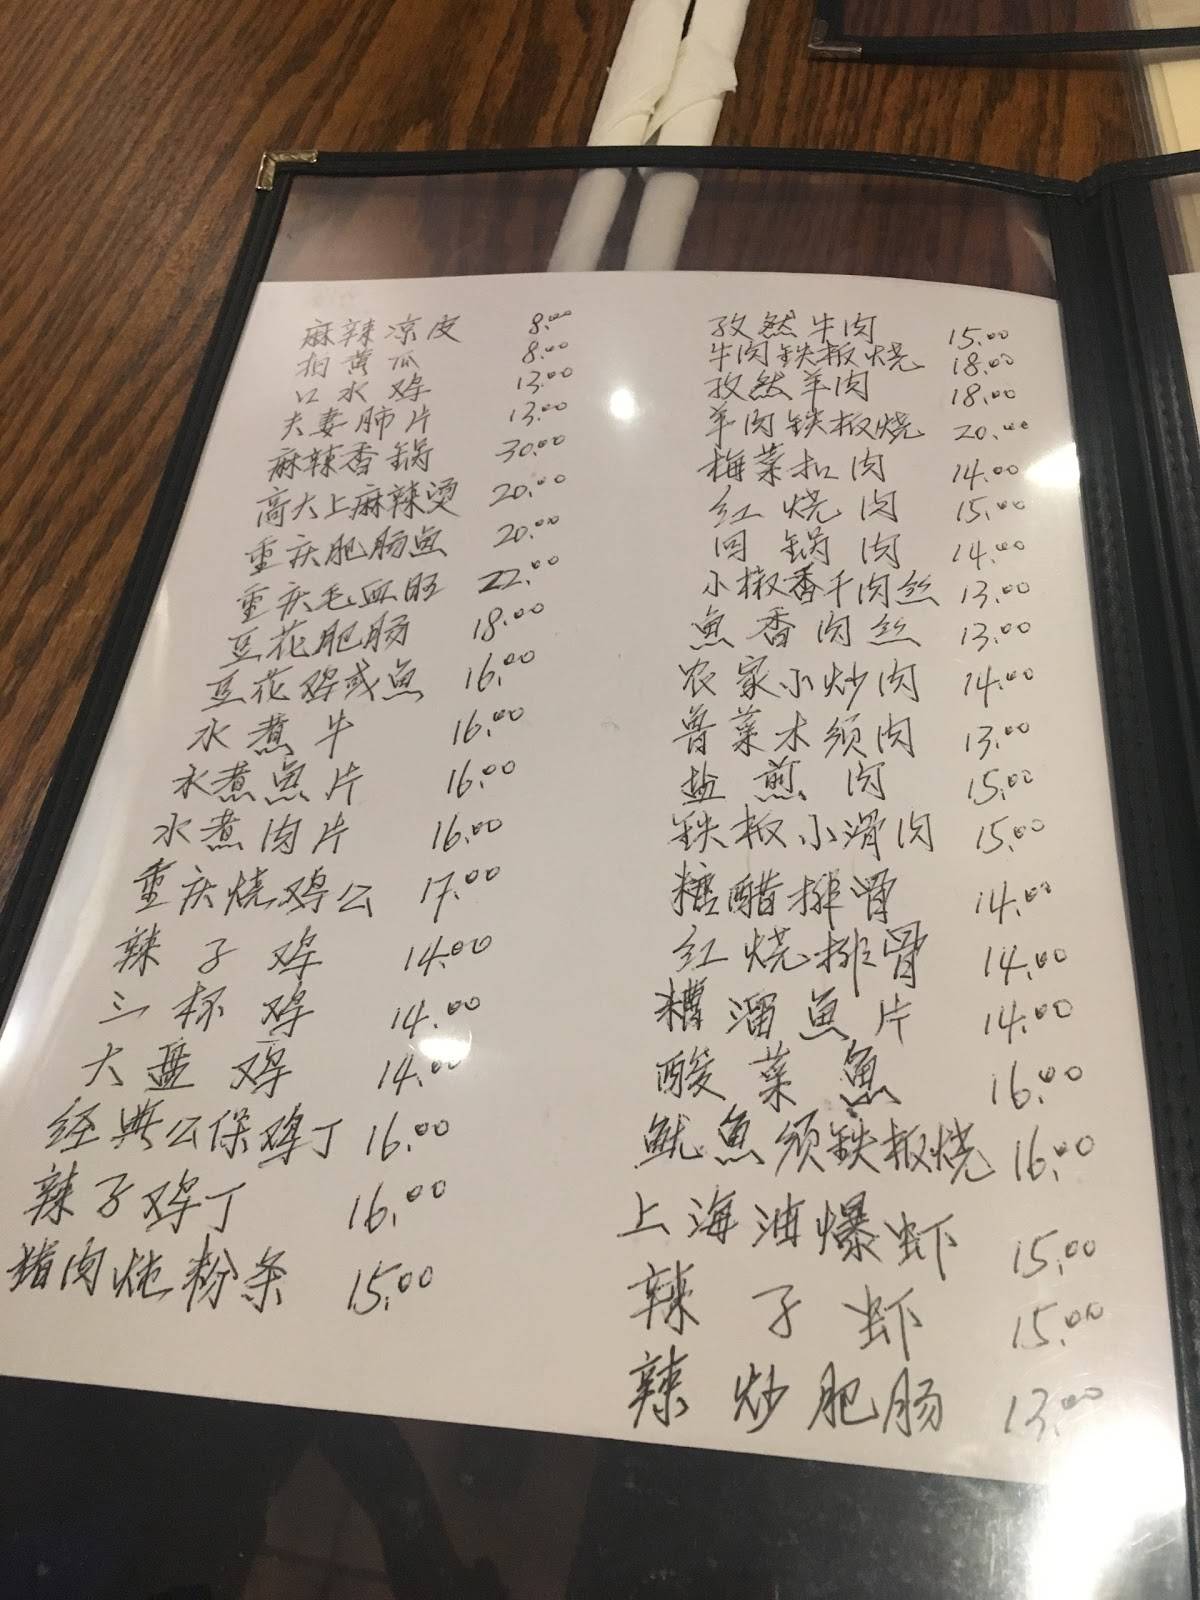 麻辣凉皮 8.00
拍黄瓜 8.00
口水鸡 13.00
夫妻肺片 13.00
麻辣香锅 30.00
高大上麻辣烫 20.00
重庆肥肠鱼 20.00
重庆毛血旺 22.00
豆花肥肠 18.00
豆花鸡或鱼 16.00
水煮牛 16.00
水煮鱼片 16.00
水煮肉片 16.00
重庆烧鸡公 17.00
辣子鸡 14.00
三杯鸡 14.00
大盘鸡 14.00
经典公保鸡丁 16.00
辣子鸡丁 16.00
猪肉炖粉条 15.00
孜然牛肉 15.00
牛肉铁板烧 18.00
孜然羊肉 18.00
羊肉铁板烧 20.00
梅菜扣肉 14.00
红烧肉 15.00
回锅肉 14.00
小椒香干肉丝 13.00
鱼香肉丝 13.00
农家小炒肉 14.00
鲁菜木须肉 13.00
盐煎肉 15.00
铁板小滑肉 15.00
糖醋排骨 14.00
红烧排骨 14.00
糟溜鱼片 14.00
酸菜鱼 16.00
鱿鱼须铁板烧 16.00
上海油爆虾 15.00
辣子虾 15.00
辣炒肥肠 13.00